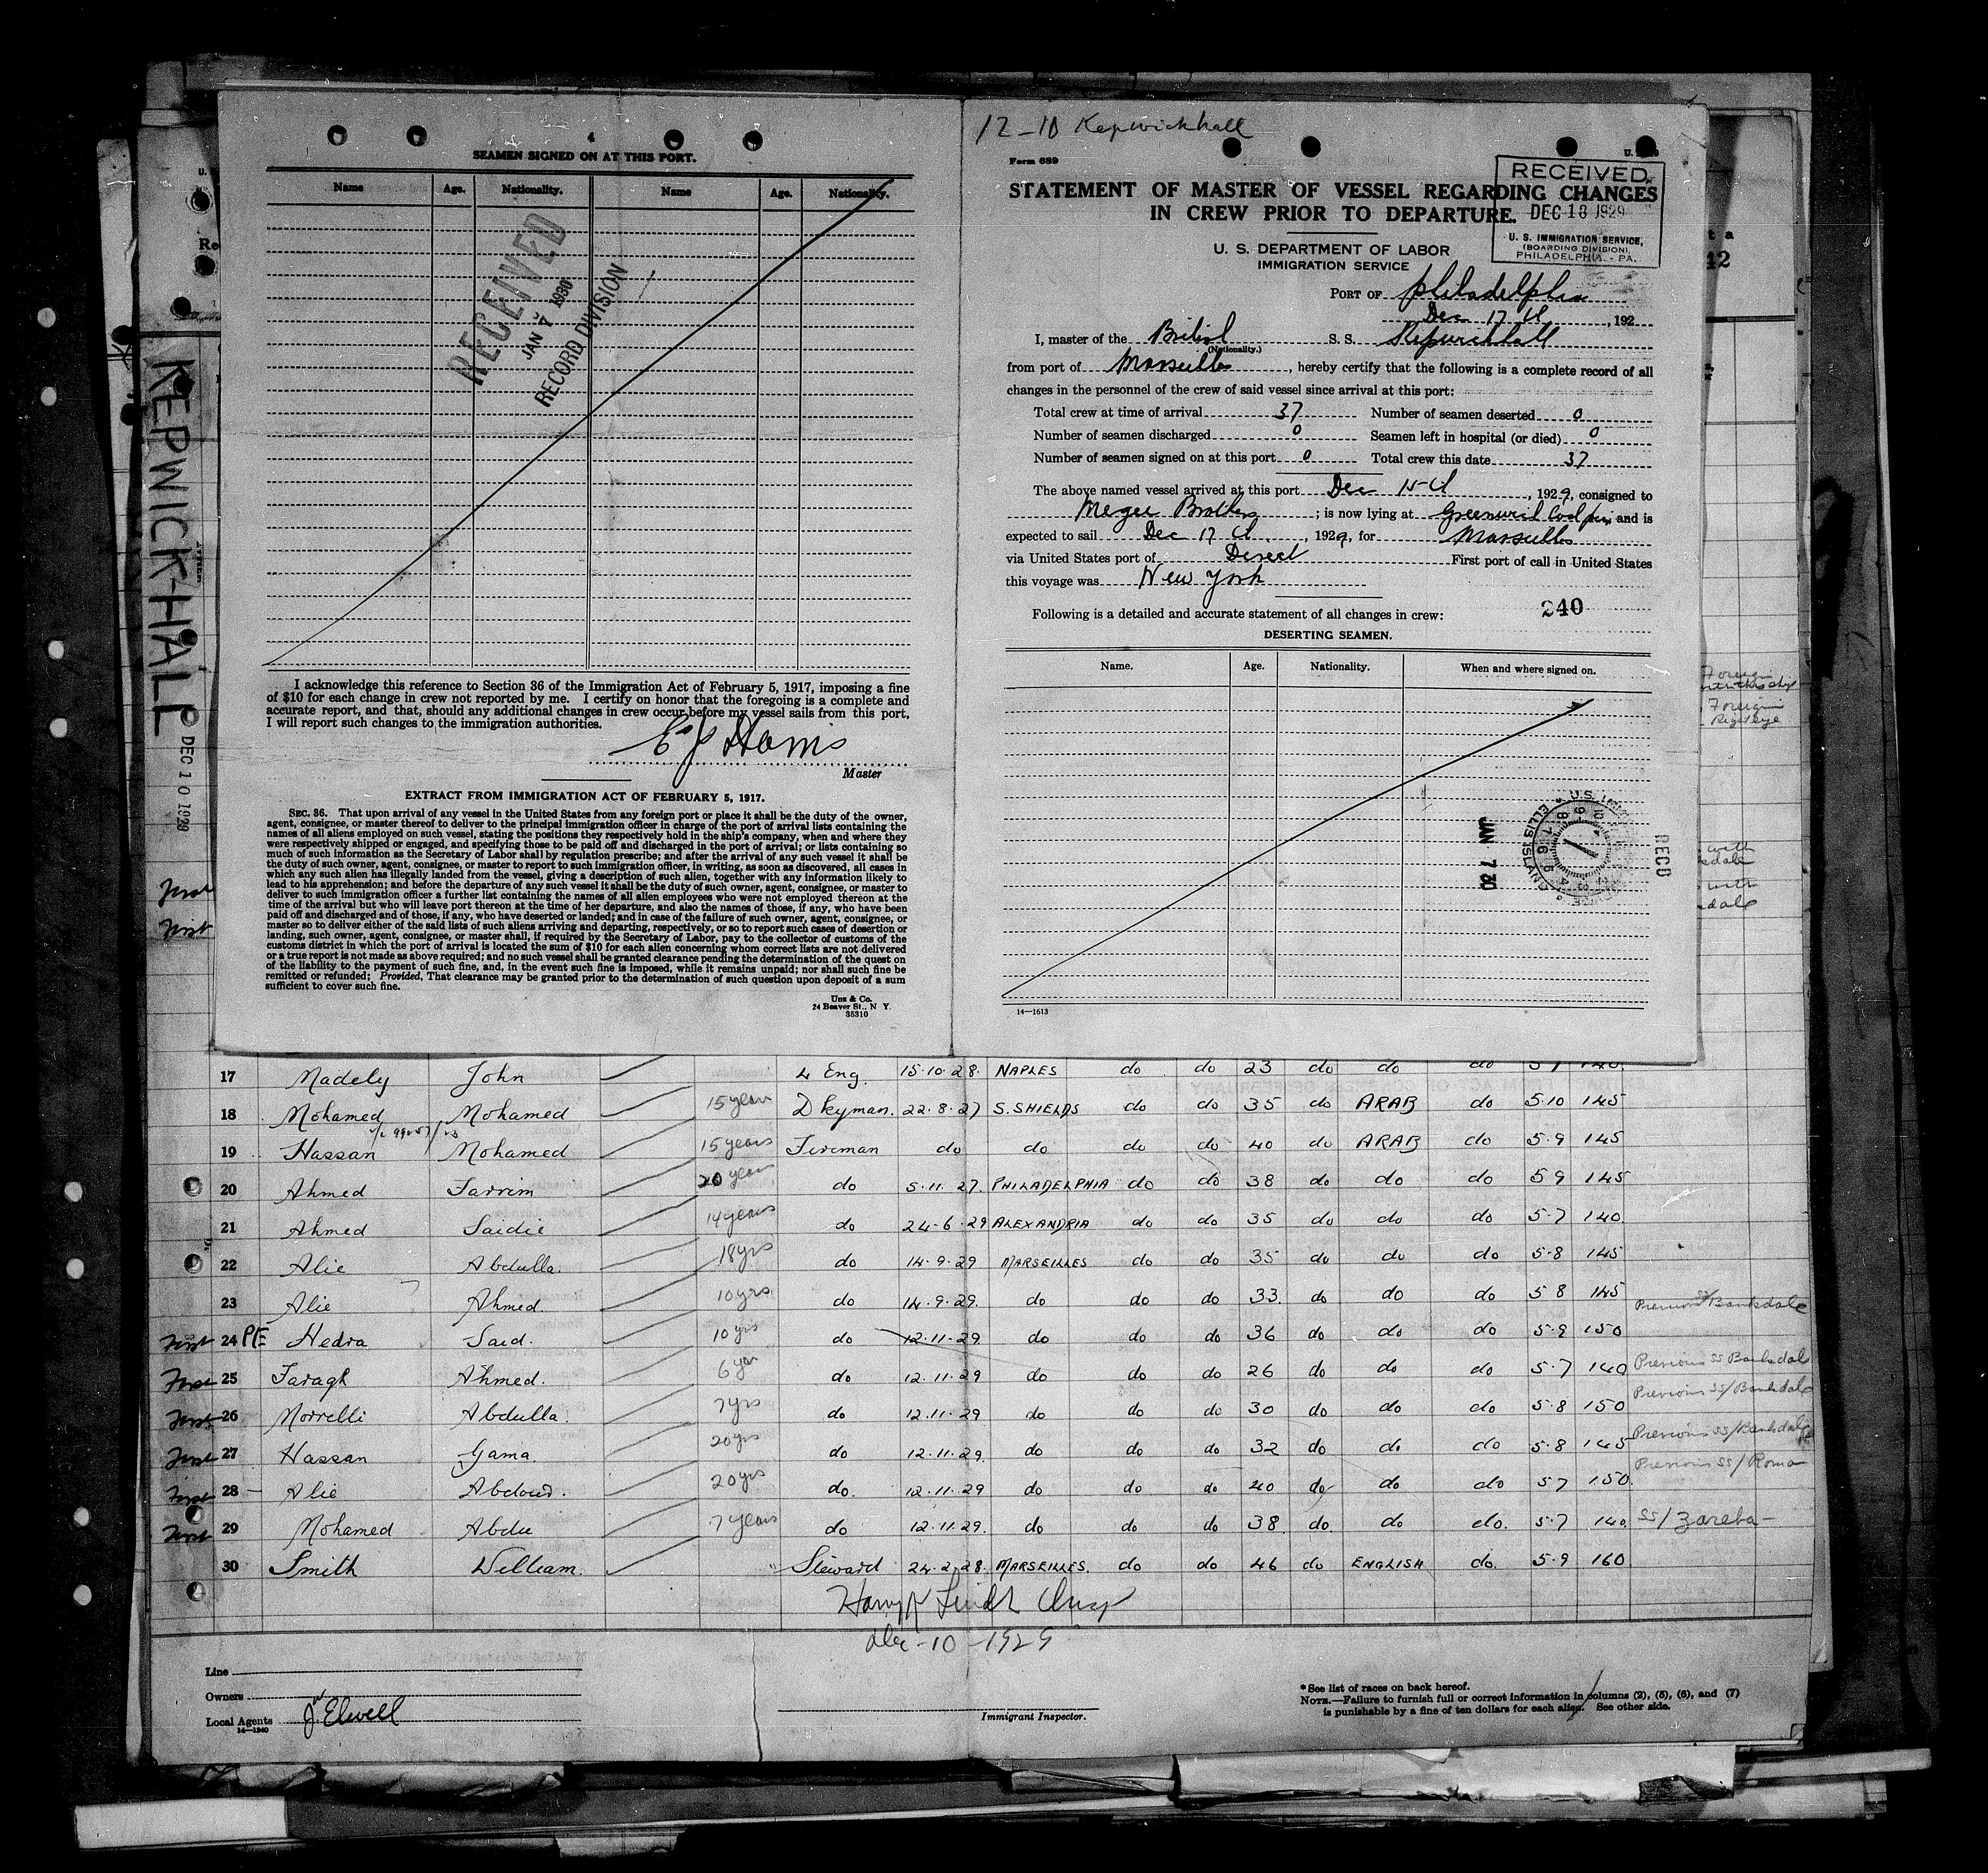 KEPWICK-HALL
DEC 10 1929
4
SEAMEN SIGNED ON AT THIS PORT.
Name Age. Nationality. Name Age. Nationality.
RECEIVED
JAN 7 1930
RECORD DIVISION
I acknowledge this reference to Section 36 of the Immigration Act of February 5, 1917, imposing a fine
of $10 for each change in crew not reported by me. I certify on honor that the foregoing is a complete and
accurate report, and that, should any additional changes in crew occur before my vessel sails from this port,
I will report such changes to the immigration authorities.
Master
EXTRACT FROM IMMIGRATION ACT OF FEBRUARY 5, 1917.
SEC. 36. That upon arrival of any vessel in the United States from any foreign port or place it shall be the duty of the owner,
agent, consignee, or master thereof to deliver to the principal immigration officer in charge of the port of arrival lists containing the
names of all aliens employed on such vessel, stating the positions they respectively hold in the ship's company, when and where they
were respectively shipped or engaged, and specifying those to be paid off and discharged in the port of arrival; or lists containing so
much of such information as the Secretary of Labor shall by regulation prescribe; and after the arrival of any such vessel it shall be
the duty of such owner, agent, consignee, or master to report to such immigration officer, in writing, as soon as discovered, all cases in
which any such alien has illegally landed from the vessel, giving a description of such alien, together with any information likely to
lead to his apprehension; and before the departure of any such vessel it shall be the duty of such owner, agent, consignee, or master to
deliver to such immigration officer a further list containing the names of all alien employees who were not employed thereon at the
time of the arrival but who will leave port thereon at the time of her departure, and also the names of those, if any, who have been
paid off and discharged and of those, if any, who have deserted or landed; and in case of the failure of such owner, agent, consignee, or
master so to deliver either of the said lists of such aliens arriving and departing, respectively, or so to report such cases of desertion or
landing, such owner, agent, consignee, or master shall, if required by the Secretary of Labor, pay to the collector of customs of the
customs district in which the port of arrival is located the sum of $10 for each alien concerning whom correct lists are not delivered
or a true report is not made as above required; and no such vessel shall be granted clearance pending the determination of the quest on
of the liability to the payment of such fine, and, in the event such fine is imposed, while it remains unpaid; nor shall such fine be
remitted or refunded; Provided, That clearance may be granted prior to the determination of such question upon deposit of a sum
sufficient to cover such fine.
Unz & Co.
24 Beaver St., N Y.
35310
12-10 Kepwickhall
Form 689
RECEIVED
DEC 18 1929
U. S. IMMIGRATION SERVICE,
(BOARDING DIVISION),
PHILADELPHIA - PA.
STATEMENT OF MASTER OF VESSEL REGARDING CHANGES
IN CREW PRIOR TO DEPARTURE.
U. S. DEPARTMENT OF LABOR
IMMIGRATION SERVICE
PORT OF Philadelphia
Dec 17 , 192
I, master of the British S. S. Kepwickhall
(Nationality.)
from port of Marseilles, hereby certify that the following is a complete record of all
changes in the personnel of the crew of said vessel since arrival at this port:
Total crew at time of arrival 37 Number of seamen deserted 0
Number of seamen discharged 0 Seamen left in hospital (or died) 0
Number of seamen signed on at this port 0 Total crew this date 37
The above named vessel arrived at this port Dec 15 , 1929, consigned to
Megee Brothers; is now lying at Greenwich Coal pier and is
expected to sail Dec 17 , 1929, for Marseilles
via United States port of Direct First port of call in United States
this voyage was New York
Following is a detailed and accurate statement of all changes in crew: 240
DESERTING SEAMEN.
Name. Age. Nationality. When and where signed on.
JAN 7 02
ELLIS ISLAND
REC'D
14—1613
17 Madely John 4 Eng. 15.10.28. NAPLES do do 23 do do do 5 7 140
18 Mohamed Mohamed 15 years Dkyman. 22.8.27 S. SHIELDS do do 35 do ARAB do 5.10 145
19 Hassan Mohamed 15 years Fireman do do do do 40 do ARAB do 5.9 145
20 Ahmed Farrim 20 years do 5.11.27. PHILADELPHIA do do 38 do do do 5 9 145
21 Ahmed Saidie 14 years do 24-6.29 ALEXANDRIA do do 35 do do do 5-7 140
22 Alie Abdulla. 18 yrs do 14.9.29 MARSEILLES do do 35 do do do 5.8 145
23 Alie Ahmed 10 yrs do 14.9.29. do do do 33. do do do 5 8 145
First 24 PE Hedra Said. 10 yrs do 12-11-29 do do do 36 do do do 5.9 150 Previous SS/Banksdale
First 25 Faragh Ahmed. 6 yrs do 12.11.29 do do do 26 do do do 5.7 140 Previous SS Banksdale
First 26 Morrelli Abdulla. 7 yrs do 12.11.29 do do do 30 do do do 5.8 150 Previous SS/Banksdale
First 27 Hassan Gama. 20 yrs do 12.11.29. do do do 32 do do do 5.8 145 Previous SS/Banksdale
First 28 Alie Abdoud. 20 yrs do. 12.11.29 do do do 40 do do do 5 7 150. Previous SS/Roma
First 29 Mohamed Abdu 7 years do 12.11.29. do do do 38. do. do do. 5.7 140. SS/Zareba
30 Smith William. Steward 24.2.28. MARSEILLES. do do 46 do ENGLISH do. 5.9 160
Dec-10-1929
Line
Owners
Local Agents J W Elwell
14—1240
Immigrant Inspector.
*See list of races on back hereof.
NOTE.—Failure to furnish full or correct information in columns (2), (5), (6), and (7)
is punishable by a fine of ten dollars for each alien. See other side.